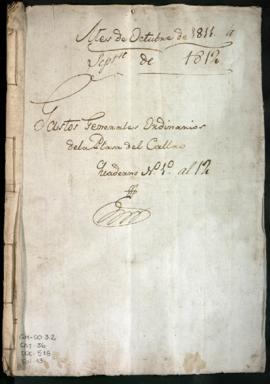 Mes de Octubre de 1811. a
Septre de 1812
Gastos Generales Ordinarios
de la Plaza del Callao
Quaderno N.º 1.º al 12